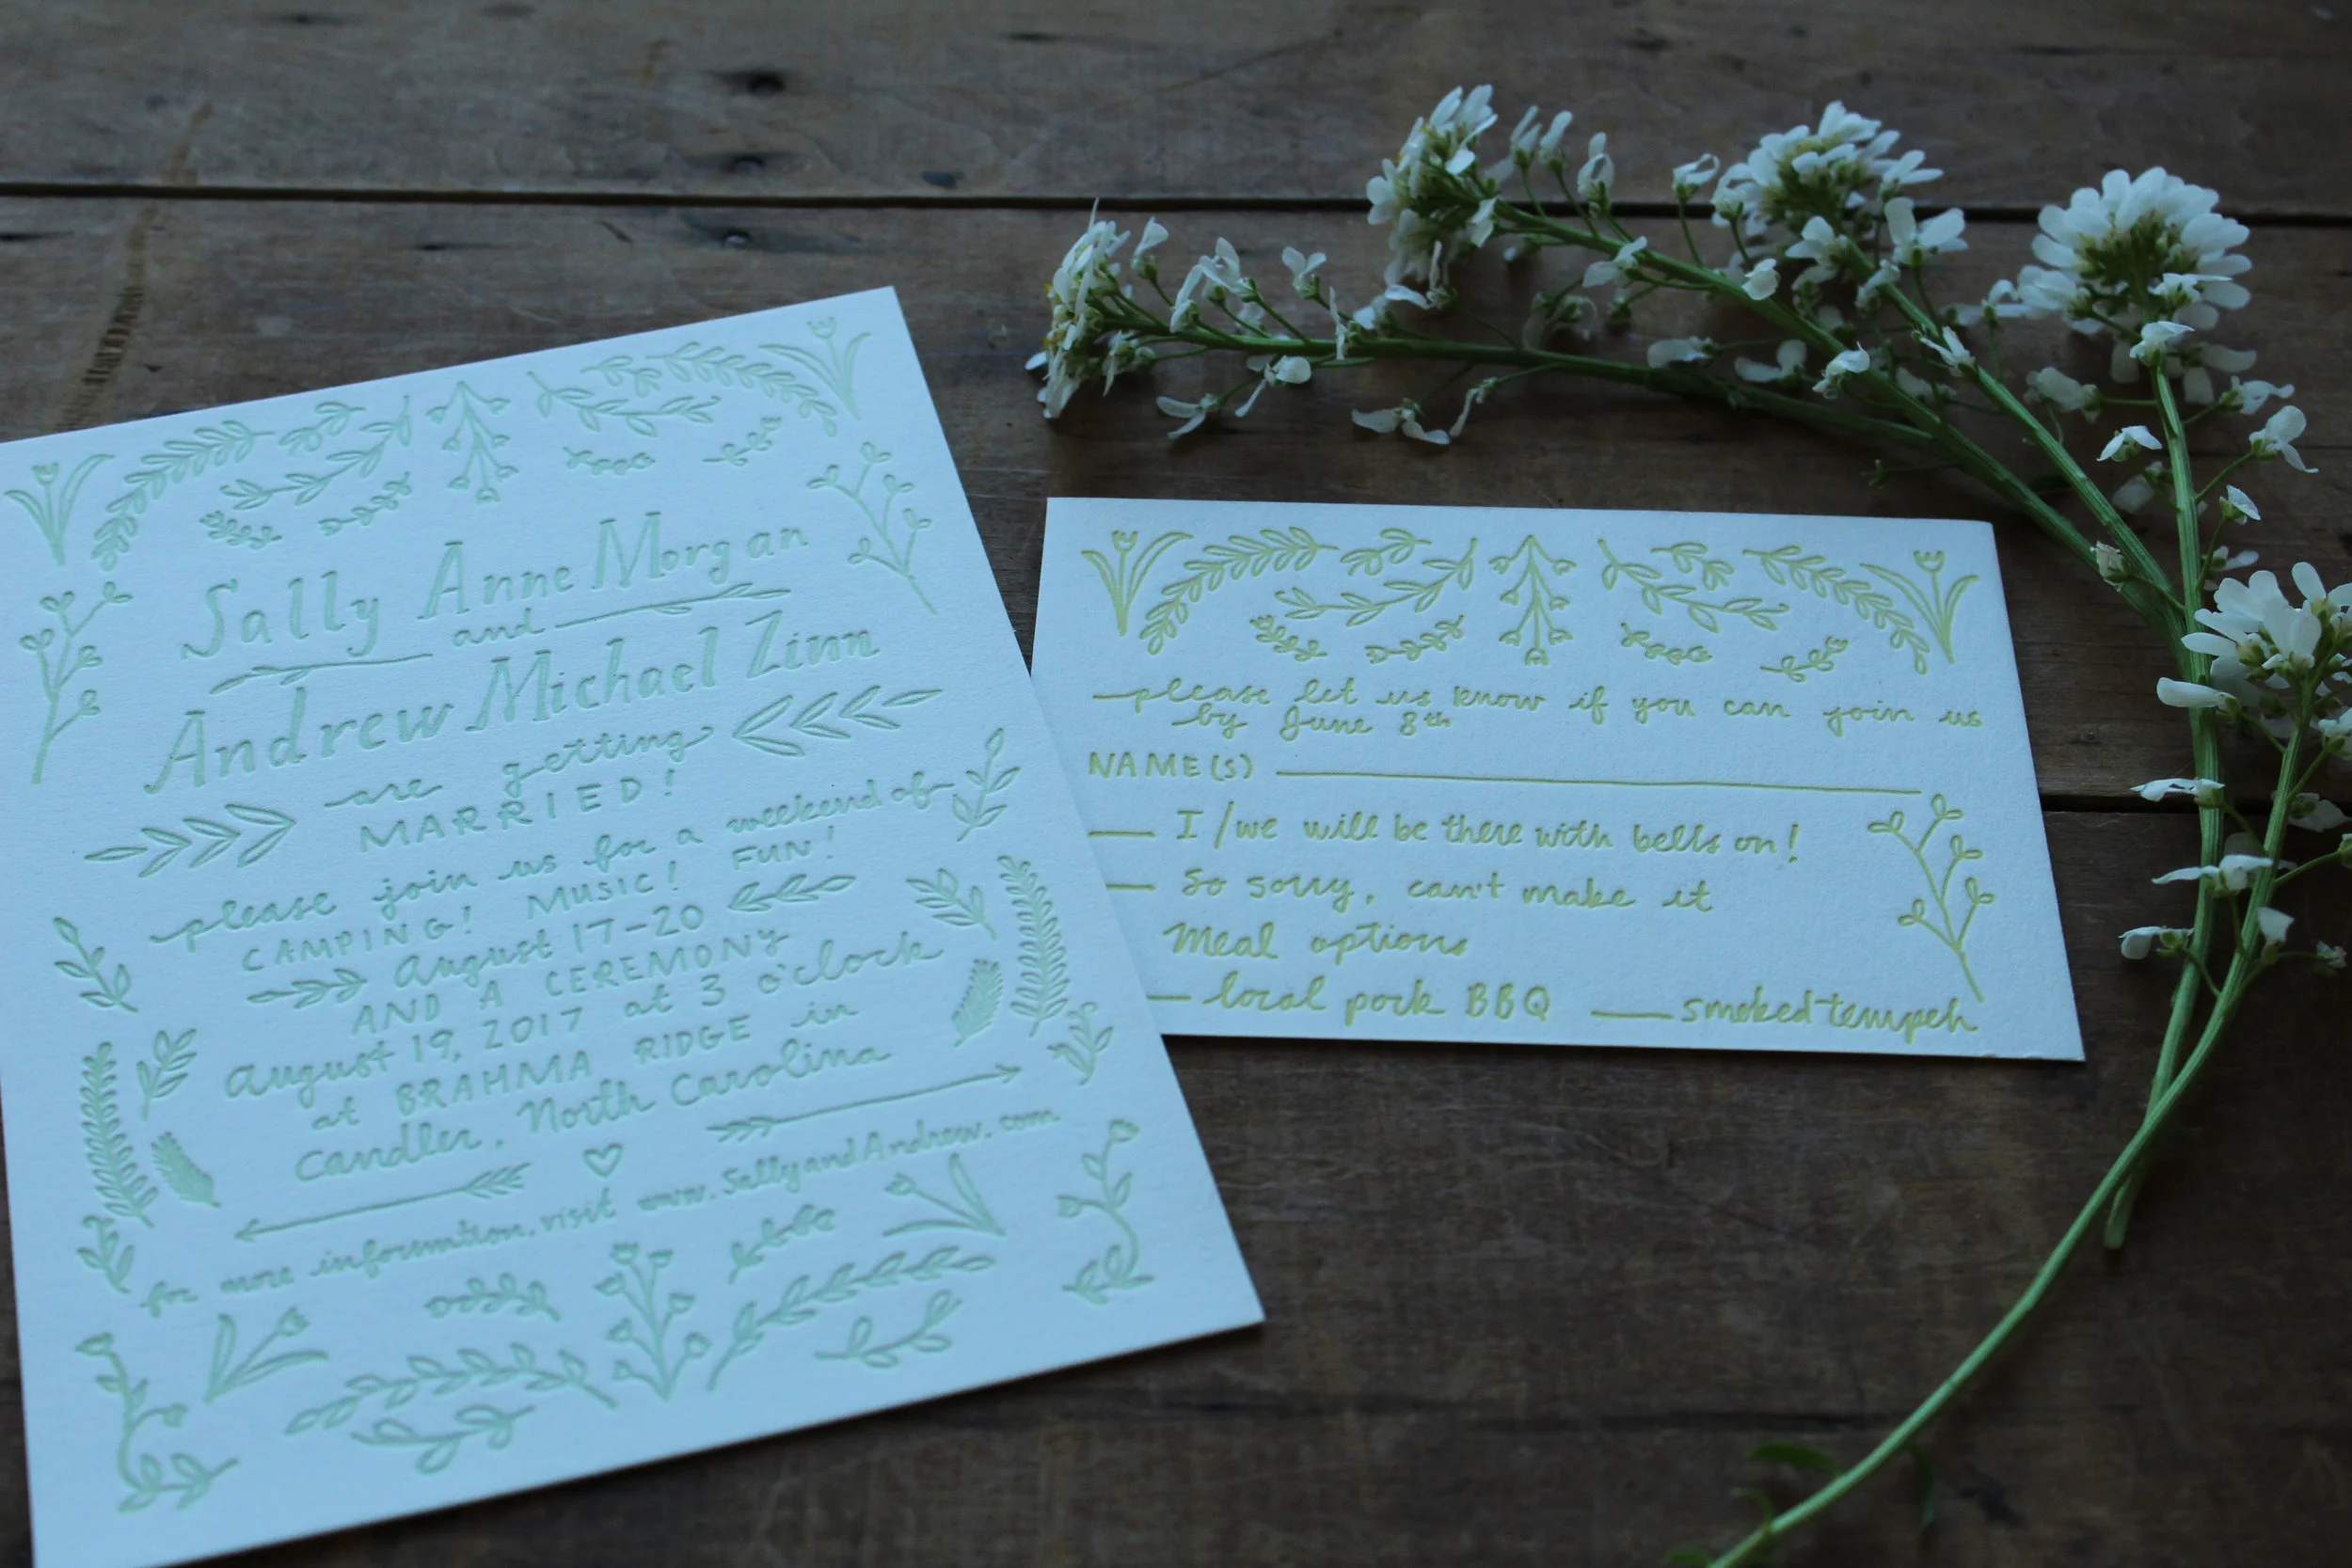 Sally Anne Morgan
and
Andrew Michael Zinn
are getting
MARRIED!
please join us for a weekend of
CAMPING! MUSIC! FUN!
August 17-20
AND A CEREMONY
August 19, 2017 at 3 o'clock
at BRAHMA RIDGE in
Candler, North Carolina
for more information, visit www.SallyandAndrew.com
please let us know if you can join us
by June 8th
NAME(S)
I/we will be there with bells on!
So sorry, can't make it
Meal options
local pork BBQ smoked tempeh